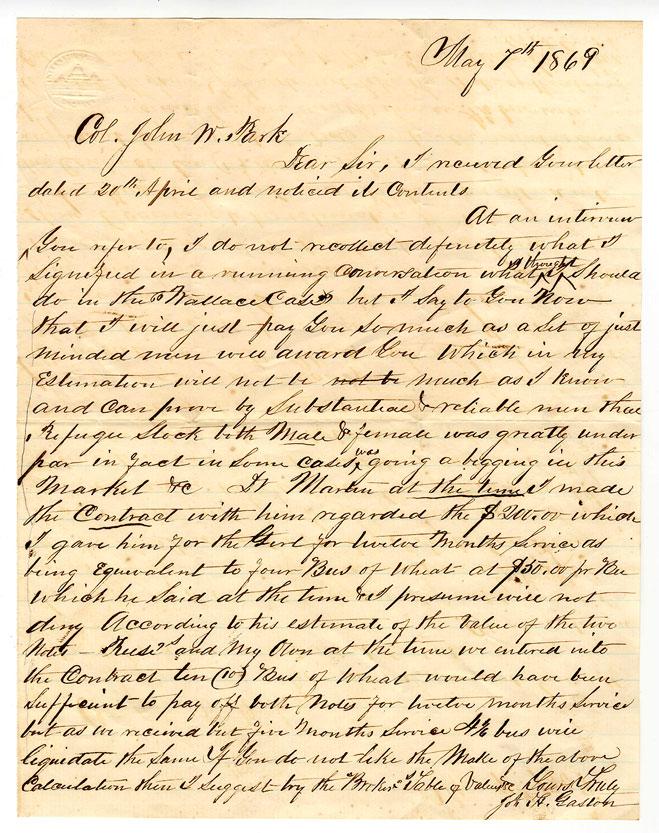 May 7th 1869
Col. John W. Park
Dear Sir, I recieved Your letter
dated 20th April and noticed its Contents
At an interview
You refer to, I do not recollect definetely what I
Signified in a running Conversation what I thought I Should
do in the Wallace Case but I Say to You Now
that I will just pay You So much as a Set of just
minded men will award You Which in my
Estimation will not be not be much as I know
and can prove by Substantial & reliable men that
Refugee Stock both Male & female was greatly under
par in fact in Some cases was going a begging in this
Market &c Martin at the time I made
the Contract with him regarded the $200.00 which
I gave him for the Girl for twelve Months Service as
being Equivalent to four Bus of Wheat at $50.00 pr Bu
Which he Said at the time & I presume will not
deny According to his estimate of the Value of the two
Notes and My Own at the time we entered into
the Contract ten (10) Bus of Wheat would have been
Sufficient to pay off both Notes for twelve months Service
but as we recieved but five Months Service bus will
liquidate the Same If You do not like the Make of the above
Calculation then I Suggest try the "Brokers" Table of Values Yours Truly
H. Gaston